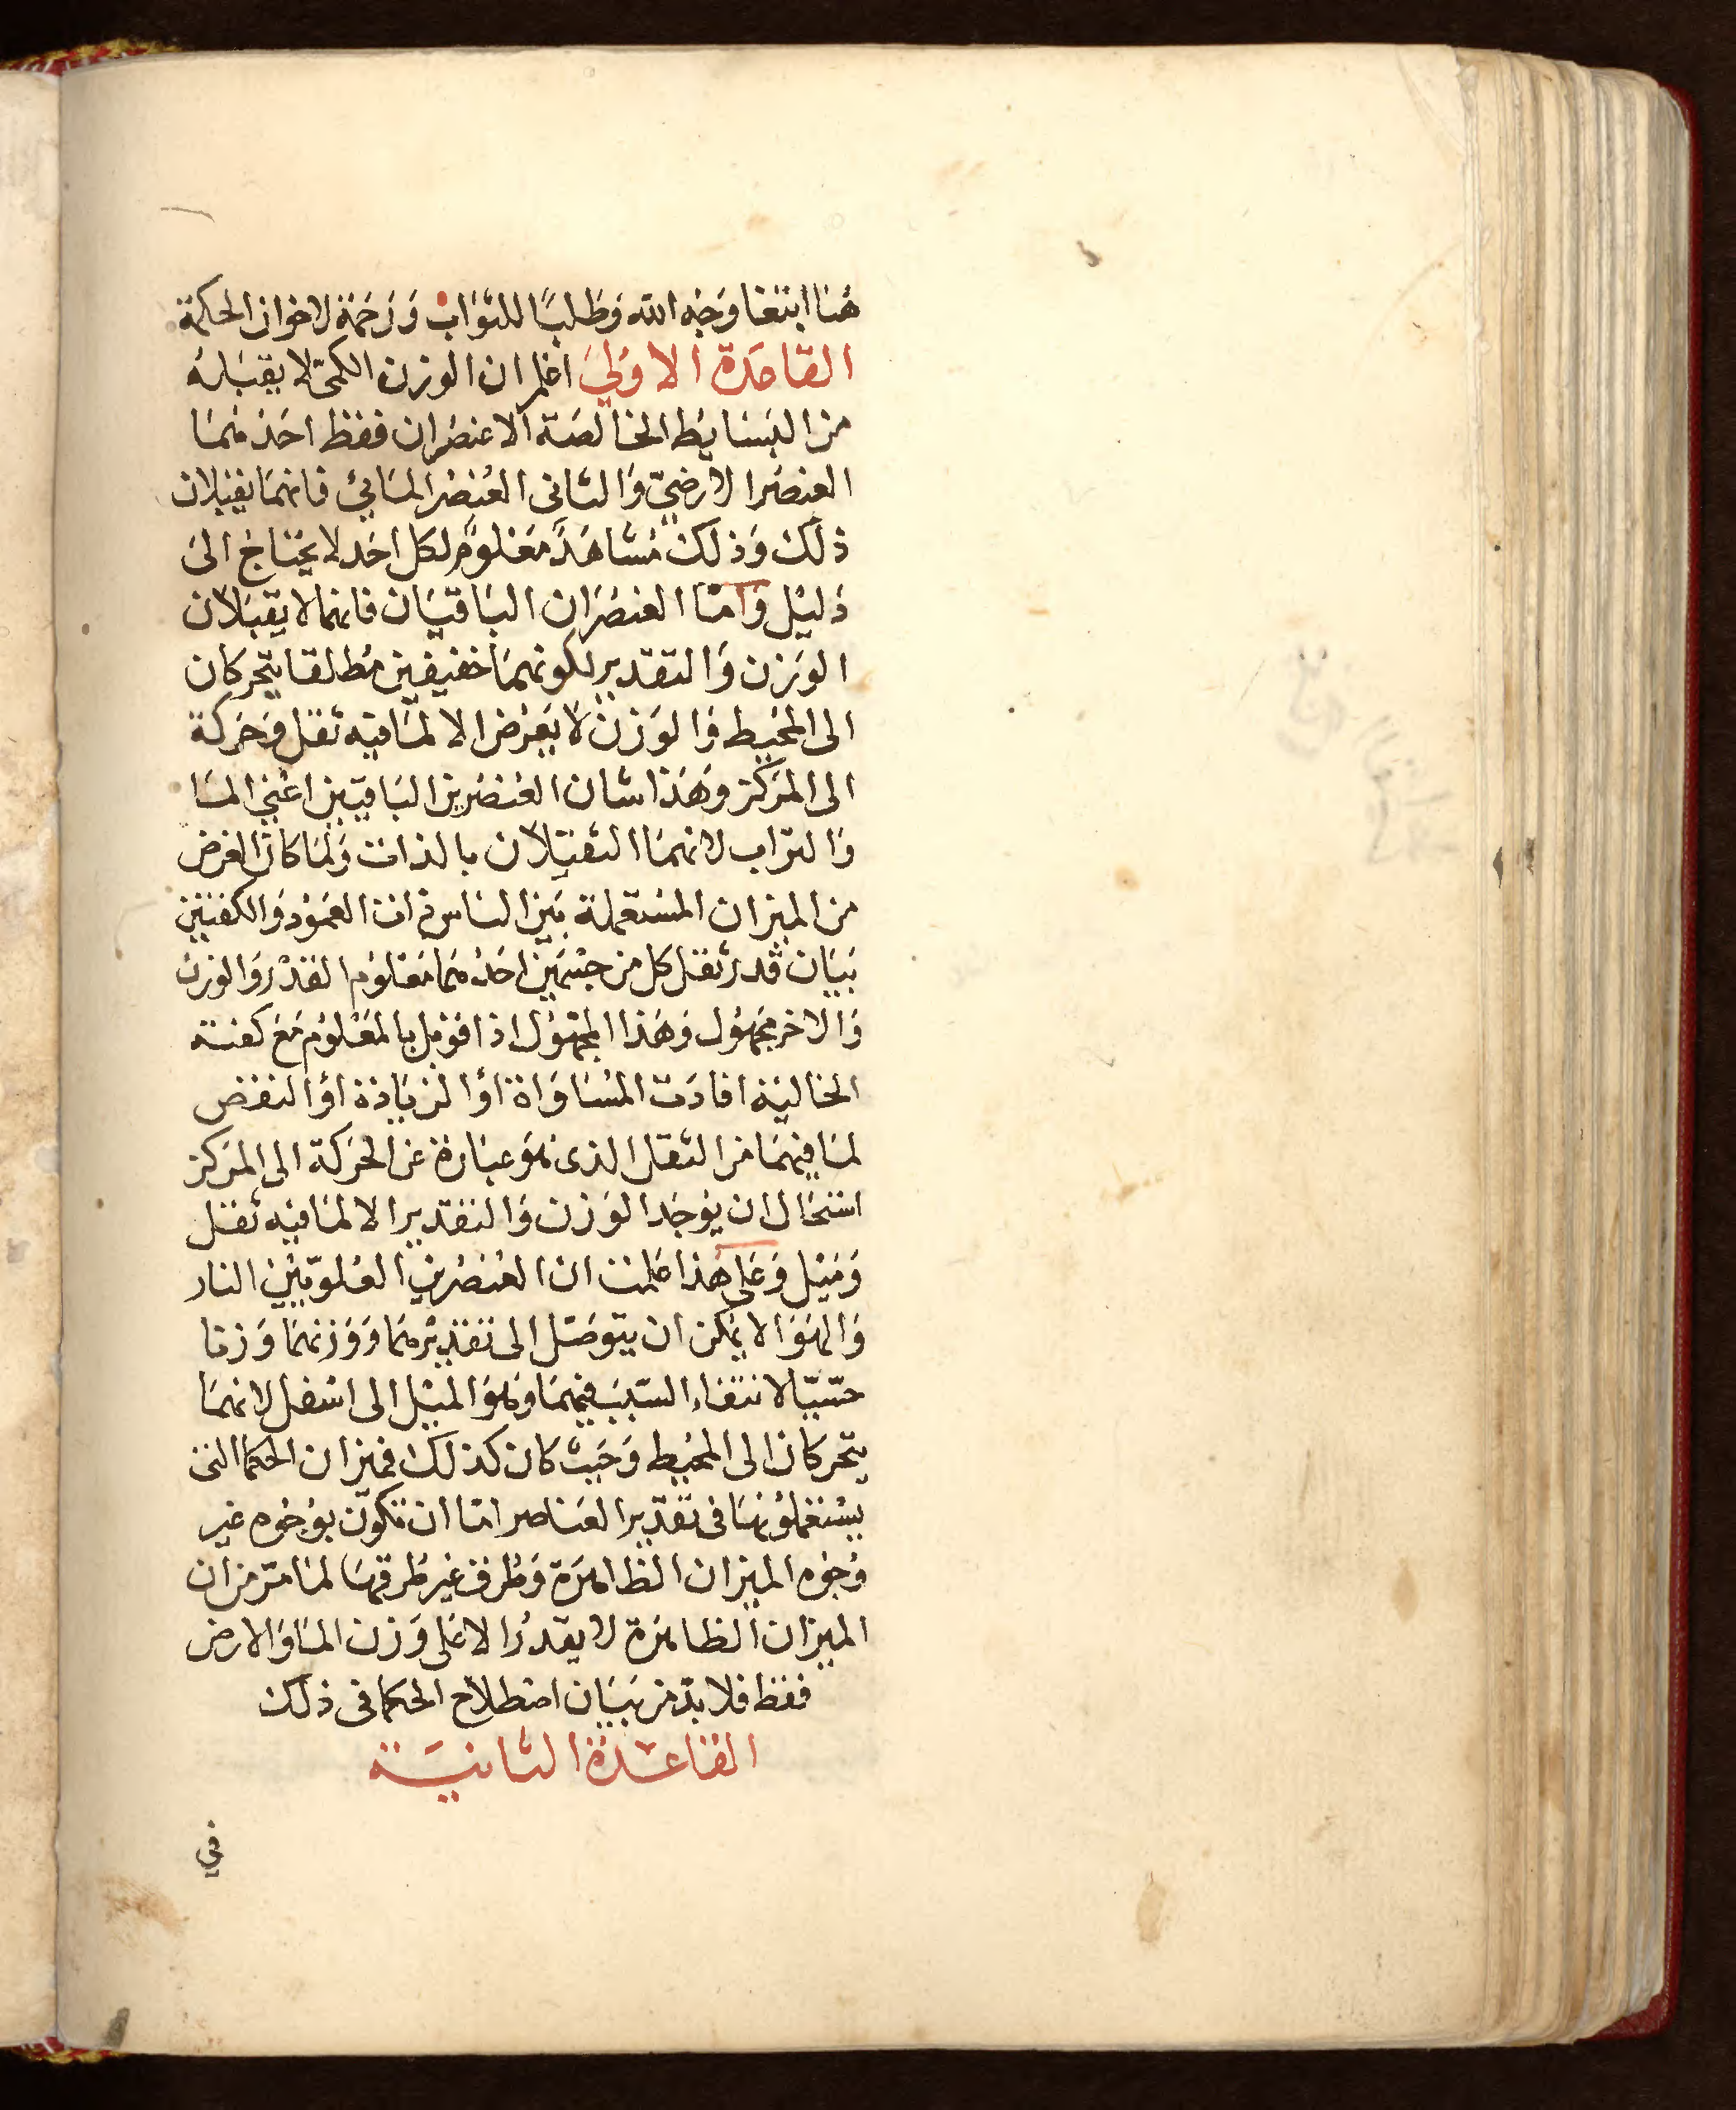 هنا ابتغا وجه الله وطلبًا للثواب ورحمة لاخوان الحكمة
القاعدة الاولى اعلم ان الوزن الكمىّ لا يقبله
من البسايط الخالصة الا عنصران فقط احد منهما
العنصر الارضىّ والثانى العنصر المائى فانهما يقبلان
ذلك وذلك مشاهد معلوم لكل احد لا يحتاج الى
دليل واما العنصران الباقيان فانهما لا يقبلان
الوزن والتقدير لكونهما خفيفين مطلقا يتحركان
الى المحيط والوزن لا يعرض الا لما فيه ثقل وحركة
الى المركز وهذا شان العنصرين الباقيين اعنى الما
والتراب لانهما الثقيلان بالذات ولما كان الغرض
من الميزان المستعملة بين الناس ذات العمود والكفتين
بيان قدر ثقل كل من جسمين احدهما معلوم القدر والوزن
والاخر مجهول وهذا المجهول اذا قوبل بالمعلوم مع كفته
الخالية افادت المساواة او الزيادة او النقص
لما فيهما من الثقل الذى هو عبارة عن الحركة الى المركز
استحال ان يوجد الوزن والتقدير الا لما فيه ثقل
وميل وعلى هذا علمت ان العنصرين العلويّين النار
والهوا لا يمكن ان يتوصل الى تقديرهما ووزنهما وزنا
حسّيّا لانتفاء السبب فيهما وهو الميل الى اسفل لانهما
يتحركان الى المحيط وحيث كان كذلك فميزان الحكما التى
يستعملونها فى تقدير العناصر اما ان تكون بوجوه غير
وجوه الميزان الظاهرة وطرق غير طرقها لما مرّ من ان
الميزان الظاهرة لا يقدر الا على وزن الما والارض
فقط فلا بدّ من بيان اصطلاح الحكما فى ذلك
القاعدة الثانية
في